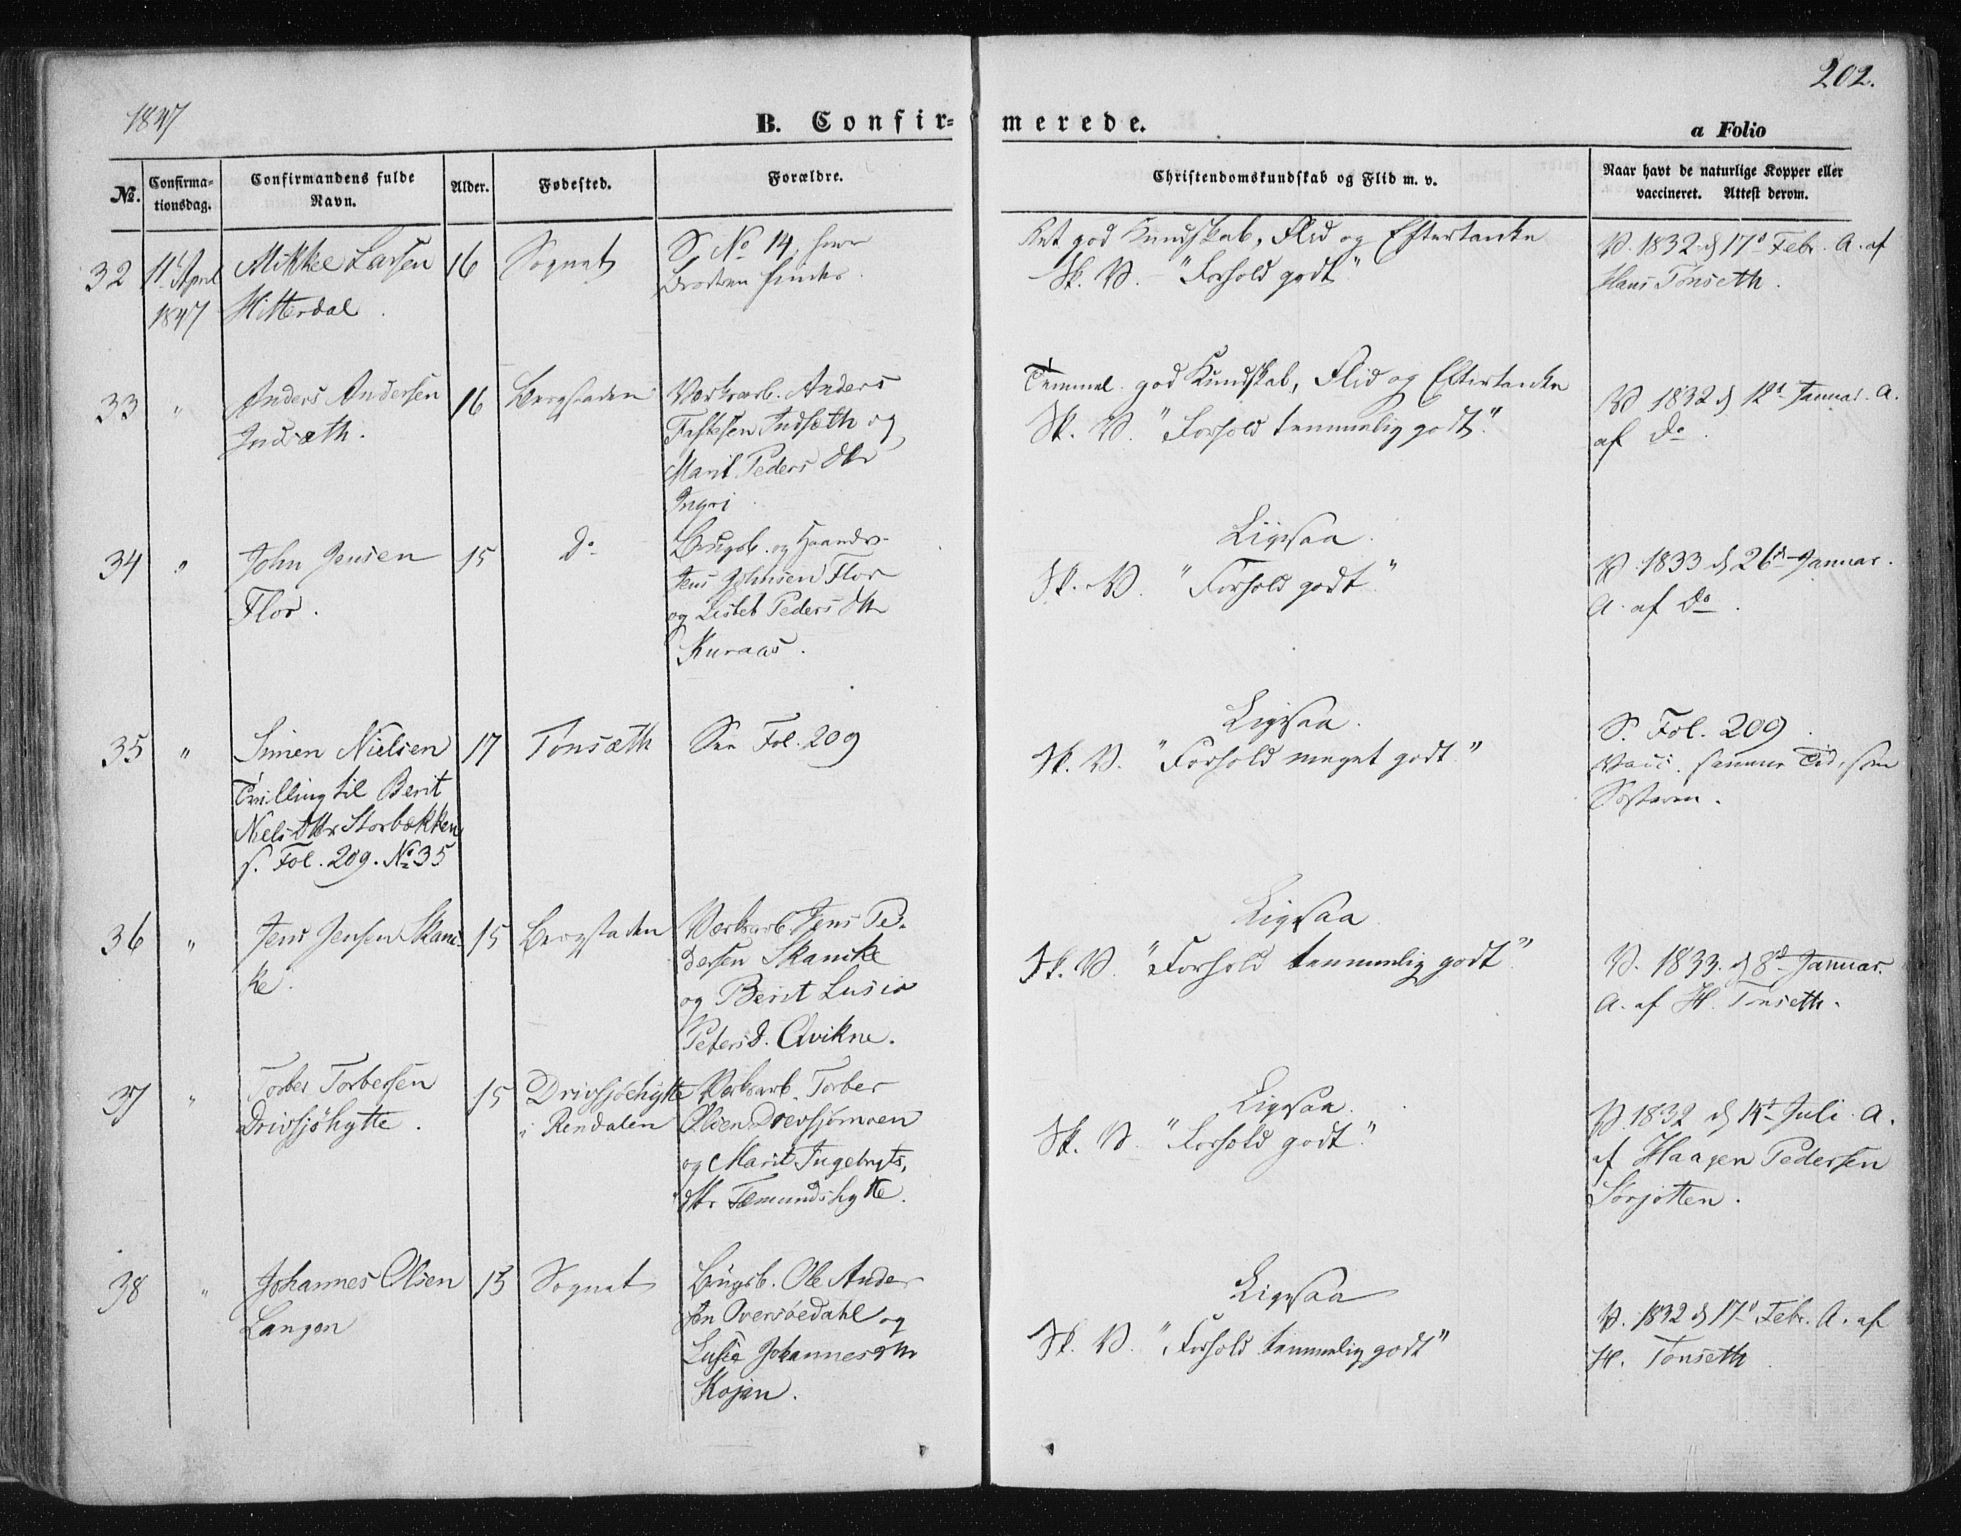 1847
202.
B. Confir-
merede.
a Folio
No.
Confirma-
tionsdag.
Confirmandens fulde
Navn.
Alder.
Fødested.
Forældre.
Christendomskundskab og Flid m. v.
Naar havt de naturlige Kopper eller
vaccineret. Attest derom.
32
11. April
1847
Mikkel Larsen
Hitterdal.
16
Sognet
S. No 14, hvor
Broderen findes.
god Kundskab, Flid og Eftertanke
Sk. V. "Forhold godt."
V. 1832 d 17d Febr. A. af
Hans Tönseth.
33
"
Anders Andersen
Indsæth.
16
Bergstaden
Værksarb. Anders
Indsæth og
Marit Peders Dtr
Ingri
Temmel. god Kundskab, Flid og Eftertanke
Sk. V. "Forhold temmelig godt."
V 1832 d 12d Januar. A.
af Do.
34
"
John Jensen
Flor.
15
Do
Brugsb. og Haandv.
Jens Johnsen Flor
og Lisbet Peders Dtr
Kuraas.
Ligesaa.
Sk. V. "Forhold godt."
V. 1833 d 26d Januar.
A. af Do.
35
"
Simen Nielsen
Tvilling til Berit
Niels Dtr Storbækken
s. Fol. 209. No 35
17
Tonsæth
See Fol. 209
Ligesaa.
Sk. V. "Forhold meget godt."
S. Fol. 209.
Vacc. samme Tid, som
Søsteren.
36
"
Jens Jensen Skanc-
ke.
15
Bergstaden
Værksarb Jens Pe-
dersen Skancke
og Berit Lusie
Petersd. Qvikne.
Ligesaa
Sk. V. "Forhold temmelig godt."
V. 1833. d 8d Januar.
A. af H. Tonseth.
37
"
Torber Torbersen
Drivsjöhytte.
15
Drivsjöehytte
i Rendalen
Værksarb. Torber
Olsen Drevsjømoen
og Marit Ingebrgts.
dtr Fæmundshytte.
Ligesaa.
Sk. V. "Forhold godt."
V. 1832 d 14d Juli. A.
af Haagen Pedersen
38
"
Johannes Olsen
Langen
15
Sognet
Brugsb. Ole Ander-
sen Oversöedahl og
Lusie Johannesdtr
Kojen.
Ligesaa
Sk. V. "Forhold temmelig godt"
V. 1832 d 17d Febr. A. af
H. Tonseth